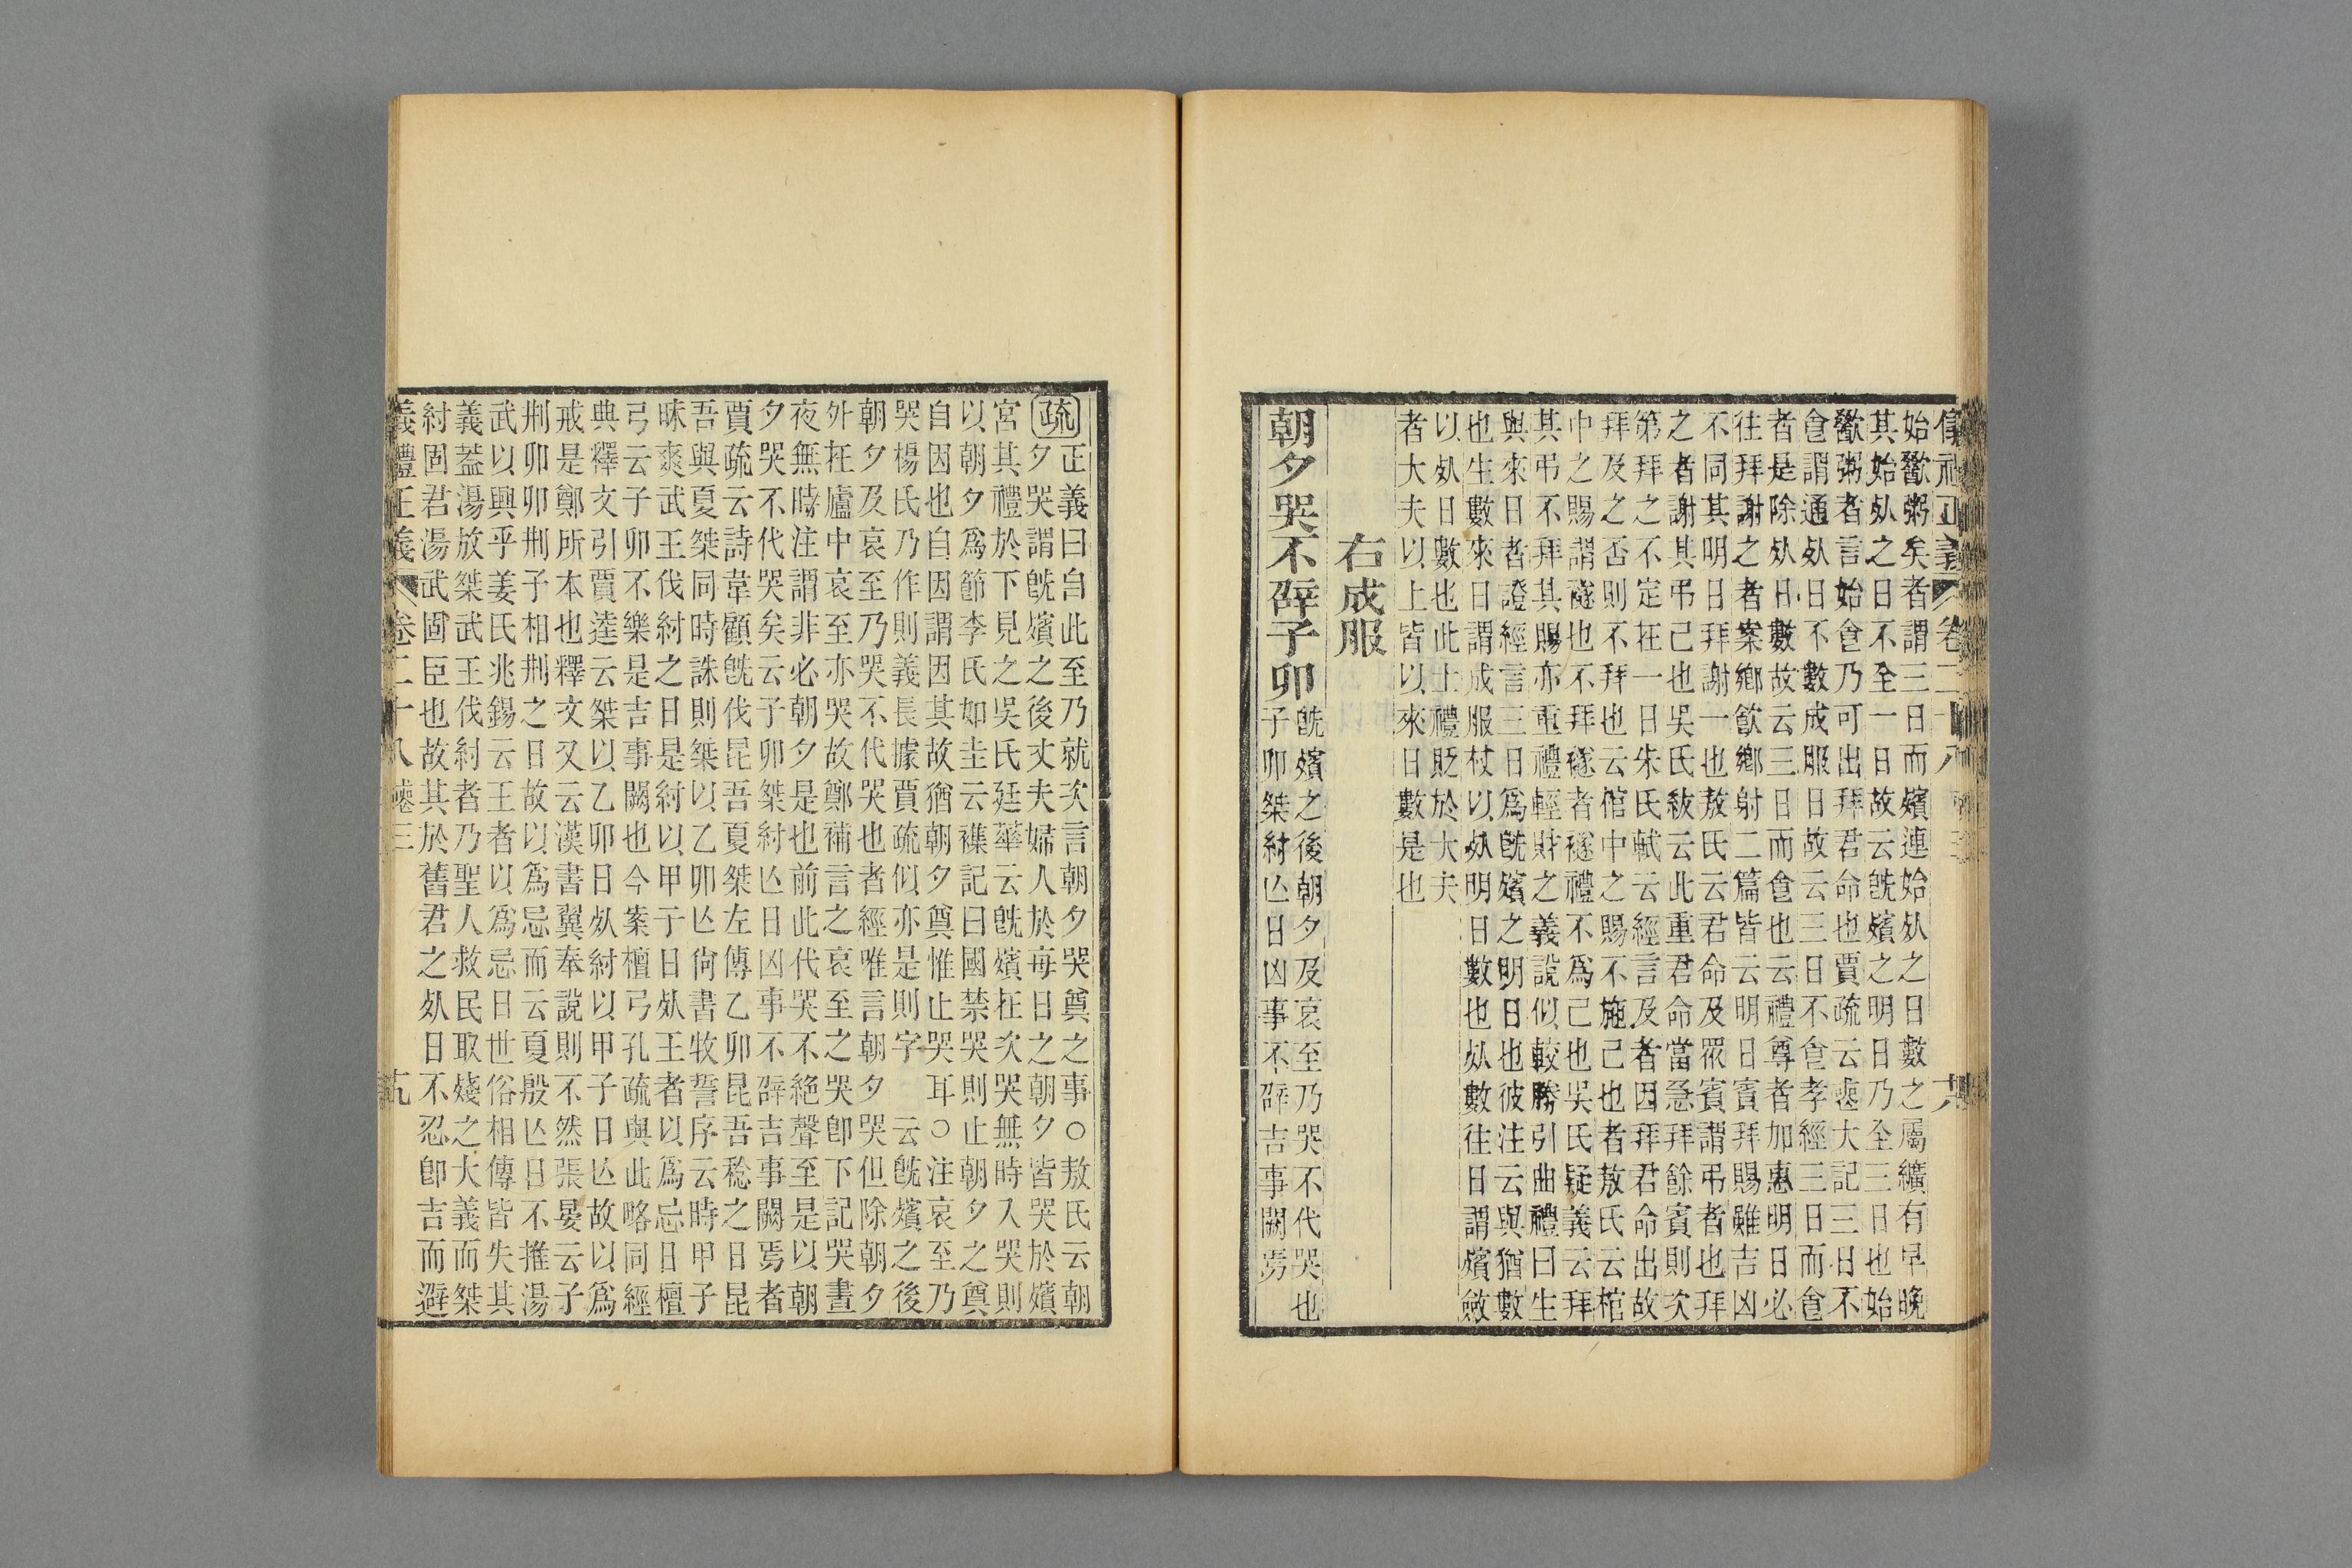 義 卷二十八
始歠粥矣者謂三日而殯連始𣦸之日數之屬纊有早晚
其始𣦸之日不全一日故云旣殯之明日乃全三日也始
歠粥者言始食乃可出拜君命也賈疏云喪大記三日不
食謂通𣦸日不數成服日故云三日不食孝經三日而食
者是除𣦸日數故云三日而食也云禮尊者加惠明日必
往拜謝之者案鄉飮鄉射二篇皆云明日賓拜賜雖吉凶
不同其明日拜謝一也敖氏云君命及眾賓謂弔者也拜
之者謝其弔己也吳氏紱云此重君命當急拜餘賓則次
第拜之不定在一日朱氏軾云經言及者因拜君命出故
拜及之否則不拜也云棺中之賜不施己也者敖氏云棺
中之賜謂襚也不拜襚者襚禮不爲己也吳氏疑義云拜
其弔不拜其賜亦重禮輕財之義說似較勝引曲禮曰生
與來日者證經言三日爲旣殯之明日也彼注云與猶數
也生數來日謂成服杖以𣦸明日數也𣦸數往日謂殯斂
以𣦸日數也此士禮貶於大夫
者大夫以上皆以來日數是也
右成服
朝夕哭不辟子卯
旣殯之後朝夕及哀至乃哭不代哭也
子卯桀紂亾日凶事不辟吉事闕焉
疏正義曰自此至乃就次言朝夕哭奠之事○敖氏云朝
夕哭謂旣殯之後丈夫婦人於每日之朝夕皆哭於殯
宮其禮於下見之吳氏廷華云旣殯在次哭無時入哭則
以朝夕爲節李氏如圭云襍記曰國禁哭則止朝夕之奠
自因也自因謂因其故猶朝夕奠惟止哭耳○注哀至乃
哭楊氏乃作則義長據賈疏似亦是則字 云旣殯之後
朝夕及哀至乃哭不代哭也者經唯言朝夕哭但除朝夕
外在廬中哀至亦哭故鄭補言之哀至之哭卽下記哭晝
夜無時注謂非必朝夕是也前此代哭不絕聲至是以朝
夕哭不代哭矣云子卯桀紂亾日凶事不辟吉事闕焉者
賈疏云詩韋顧旣伐昆吾夏桀左傳乙卯昆吾稔之日昆
吾與夏桀同時誅則桀以乙卯亾尙書牧誓序云時甲子
昧爽武王伐紂之日是紂以甲子日𣦸王者以爲忌日檀
弓云子卯不樂是吉事闕也今案檀弓孔疏與此略同經
典釋文引賈逵云桀以乙卯日𣦸紂以甲子日亾故以爲
戒是鄭所本也釋文又云漢書翼奉說則不然張晏云子
刑卯卯刑子相刑之日故以爲忌而云夏殷亾日不推湯
武以興乎姜氏兆錫云王者以爲忌日世俗相傳皆失其
義蓋湯放桀武王伐紂者乃聖人救民取殘之大義而桀
紂固君湯武固臣也故其於舊君之𣦸日不忍卽吉而避
儀禮正義 卷二十八 喪三